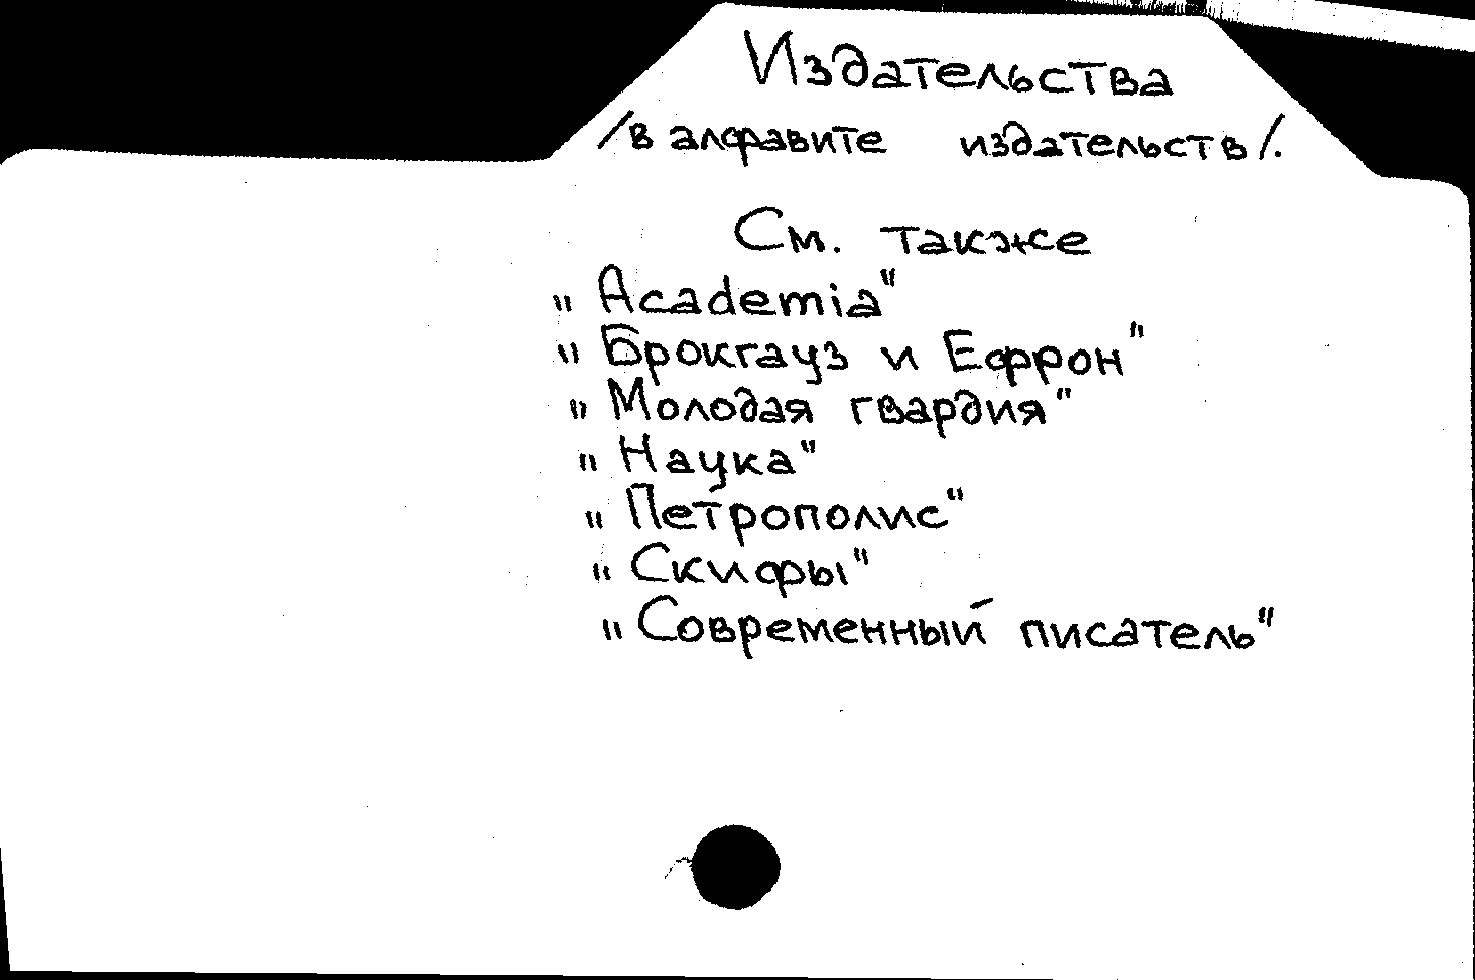 Издательства
/в алфавите издательств/.
См. также
"Academia"
"Брокгауз и Ефрон"
"Молодая гвардия"
"Наука"
"Петрополис"
"Скифы"
"Современный писатель"